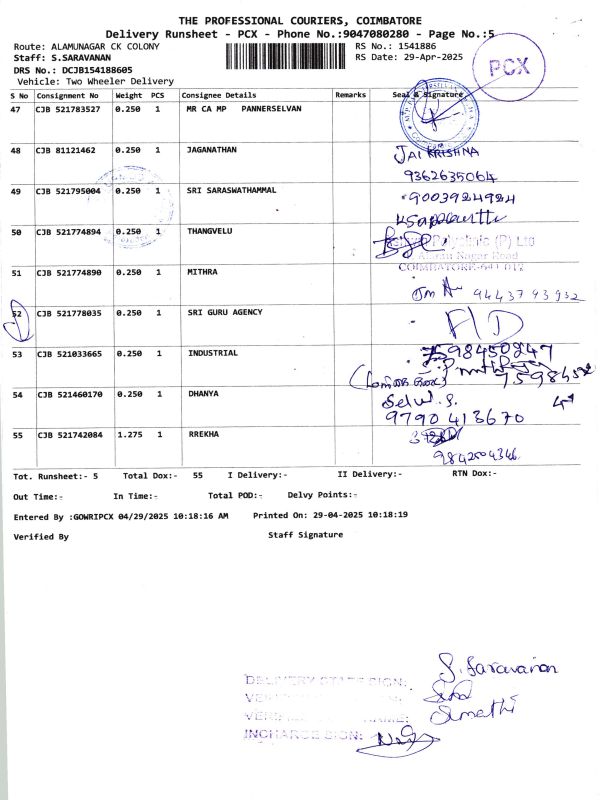 THE PROFESSIONAL COURIERS, COIMBATORE
Delivery Runsheet - PCX - Phone No.:9047080280 - Page No.:5
Route: ALAMUNAGAR CK COLONY RS No.: 1541886
Staff: S.SARAVANAN RS Date: 29-Apr-2025
DRS No.: DCJB154188605
Vehicle: Two Wheeler Delivery
PCX
S No Consignment No Weight PCS Consignee Details Remarks Seal & Signature
47 CJB 521783527 0.250 1 MR CA MP PANNERSELVAN
48 CJB 81121462 0.250 1 JAGANATHAN JAI KRISHNA
9362635064
49 CJB 521795004 0.250 1 SRI SARASWATHAMMAL 9003924924
50 CJB 521774894 0.250 1 THANGVELU Polyclinic (P) Ltd
Nagar Road
COIMBATORE-641 012
51 CJB 521774890 0.250 1 MITHRA
9443793932
52 CJB 521778035 0.250 1 SRI GURU AGENCY F/D
53 CJB 521033665 0.250 1 INDUSTRIAL 98450847
54 CJB 521460170 0.250 1 DHANYA Selvi. S.
9790413670
55 CJB 521742084 1.275 1 RREKHA
9842504346
Tot. Runsheet:- 5 Total Dox:- 55 I Delivery:- II Delivery:- RTN Dox:-
Out Time:- In Time:- Total POD:- Delvy Points:-
Entered By :GOWRIPCX 04/29/2025 10:18:16 AM Printed On: 29-04-2025 10:18:19
Verified By Staff Signature
DELIVERY STAFF SIGN: S. Saravanan
INCHARGE SIGN: